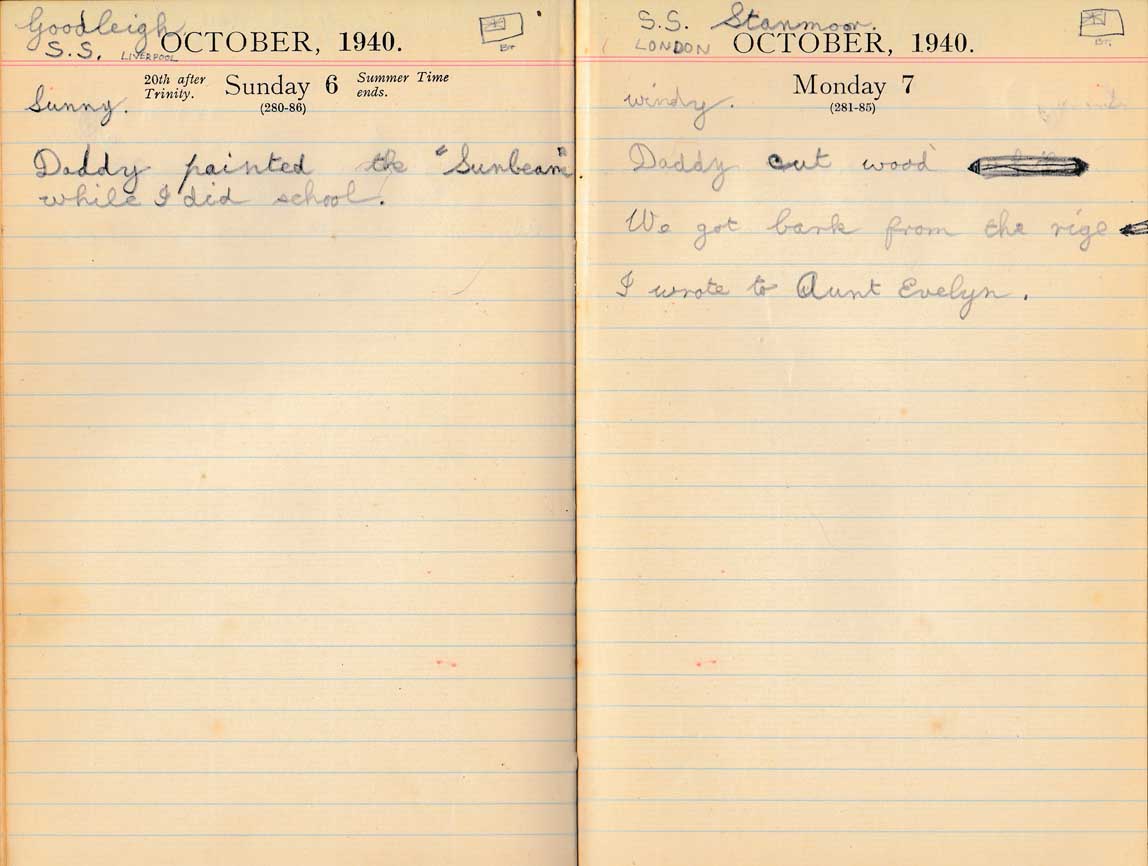 Goodleigh
S.S. LIVERPOOL
OCTOBER, 1940.
20th after Trinity.
Sunday 6
(280-86)
Summer Time ends.
Sunny.
Daddy painted the "Sunbeam"
while I did school.
S.S. Stanmoor.
LONDON
OCTOBER, 1940.
Monday 7
(281-85)
windy.
Daddy cut wood
We got bark from the rige
I wrote to Aunt Evelyn.